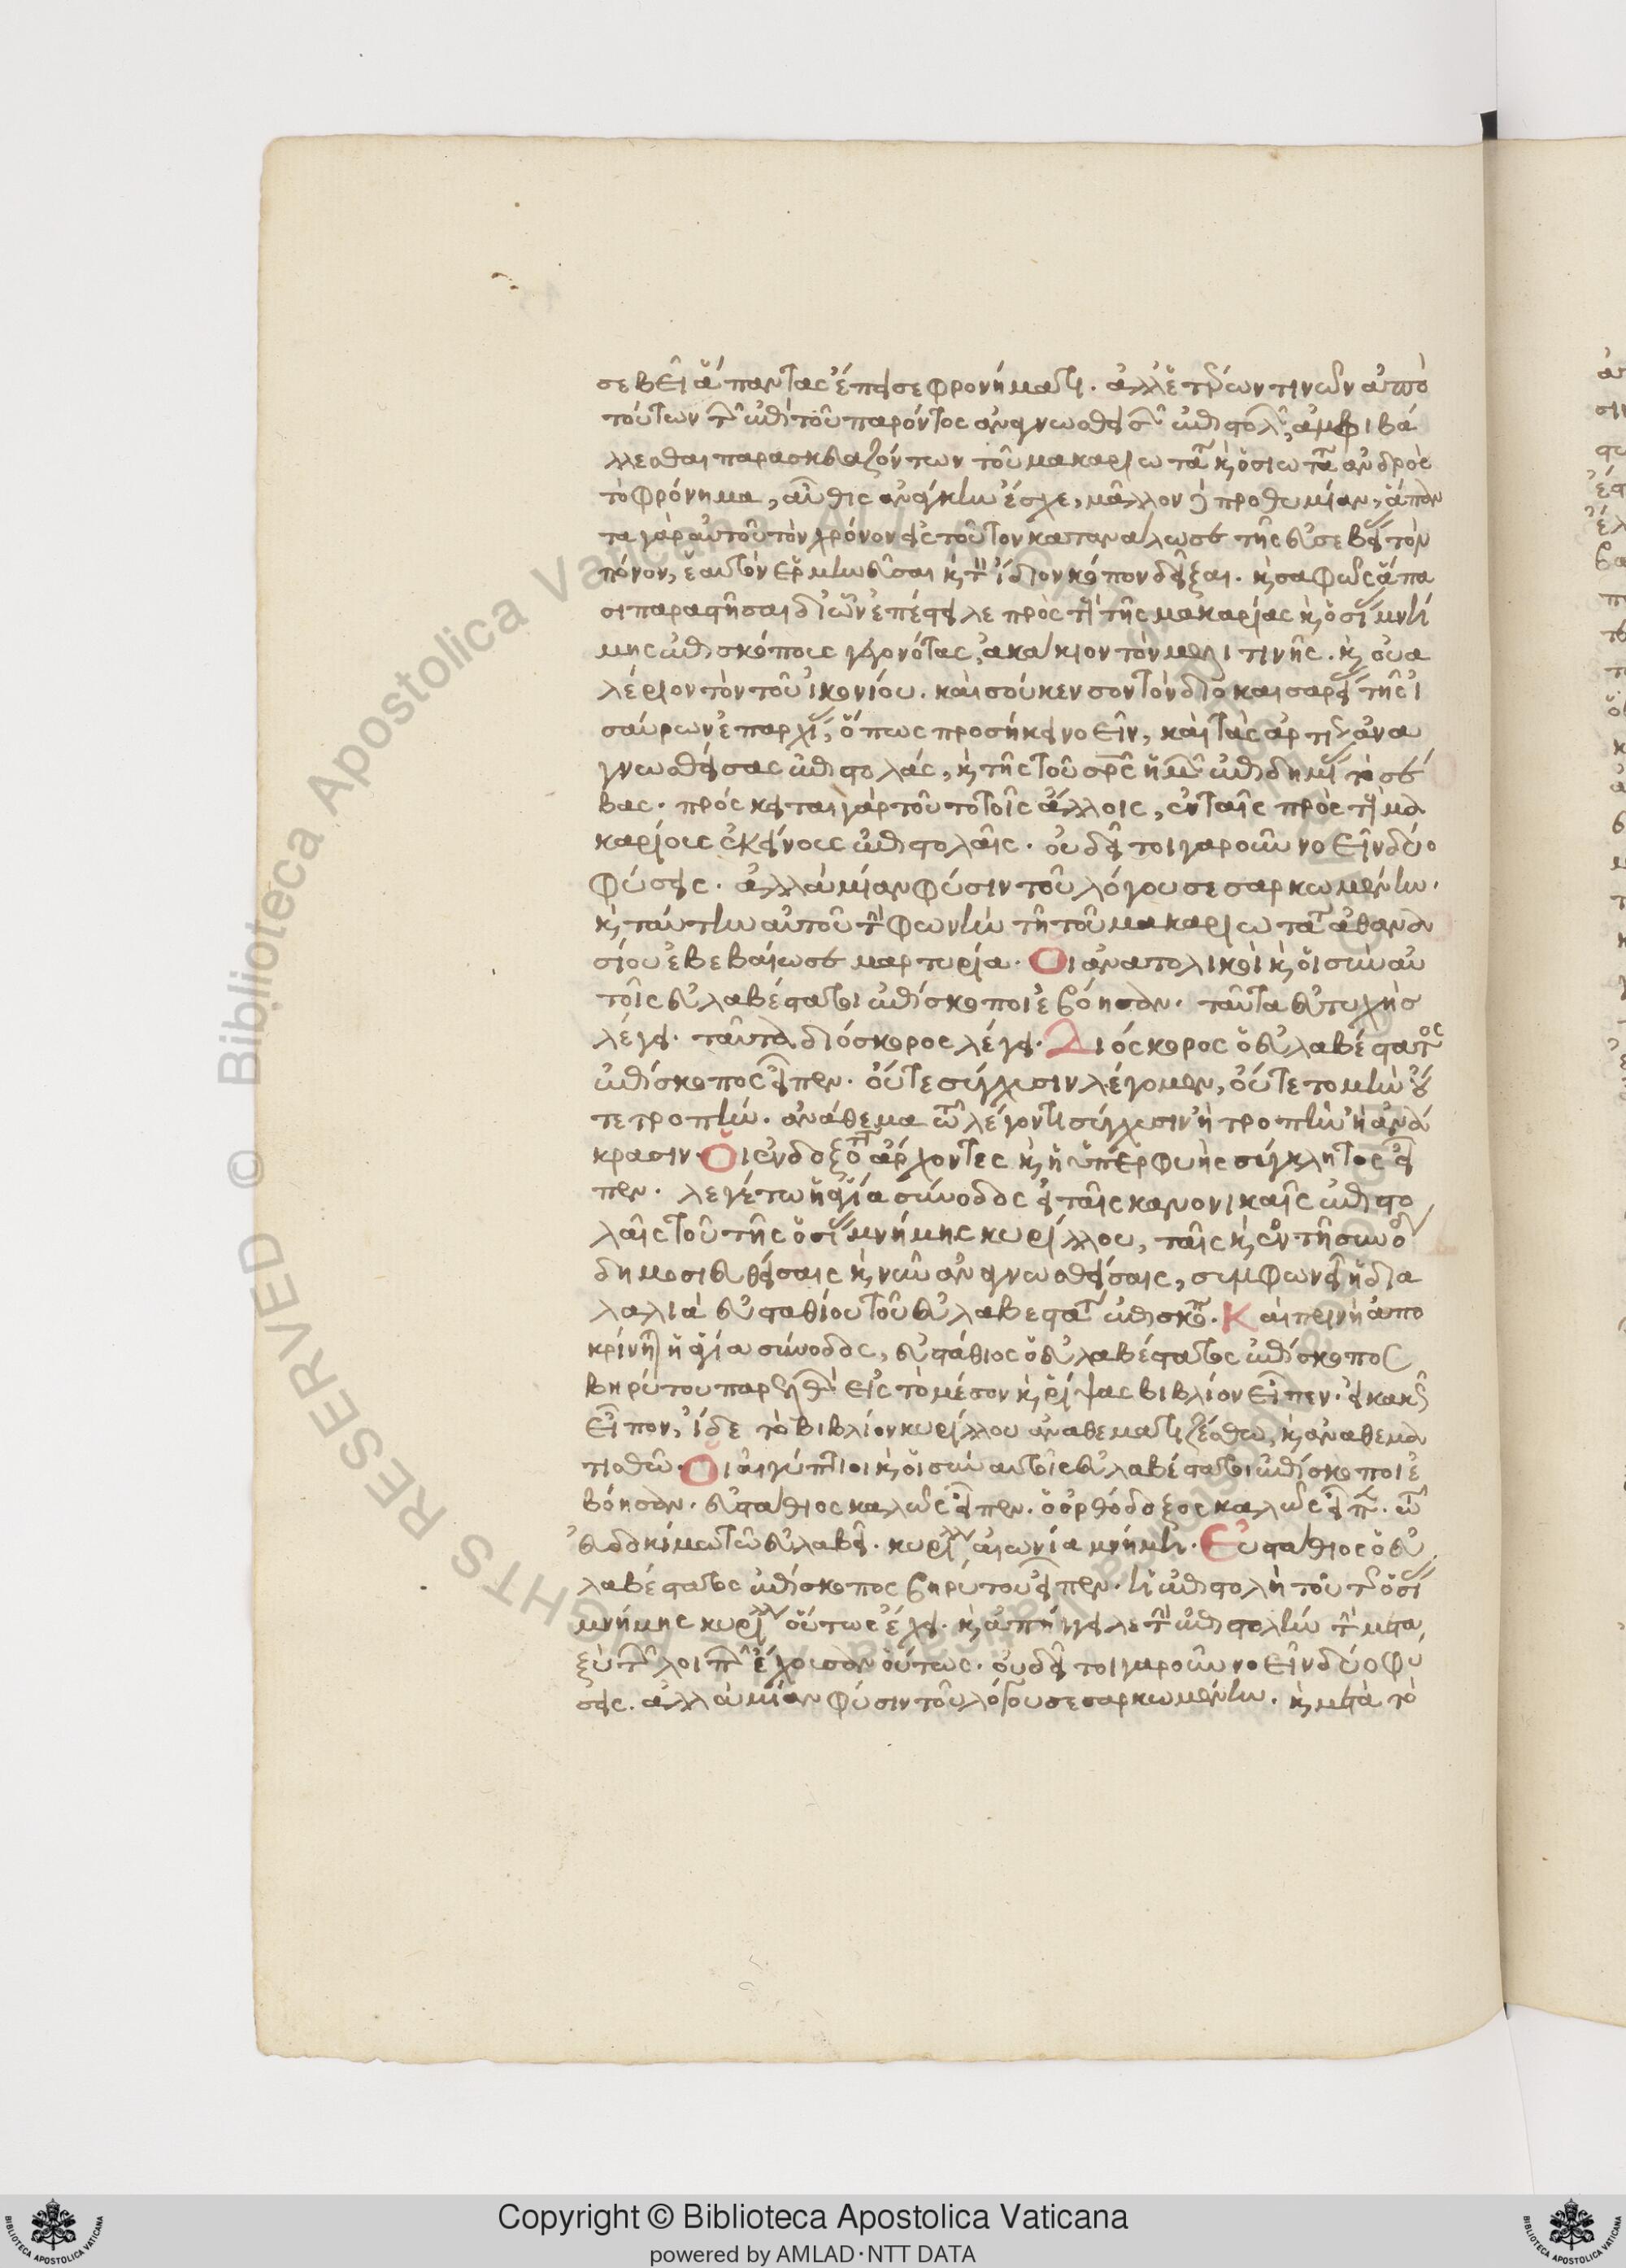 σεβεῖ ἅπαντας ἔπεισε φρονήματι. ἀλλ' ἑτέρων τινῶν ἀπὸ
τούτων τῶν ἐπὶ τοῦ παρόντος ἀναγνωσθεισῶν ἐπιστολῶν, ἀμφιβά
λλεσθαι παρασκευαζόντων τοῦ μακαριωτάτου καὶ ὁσιωτάτου ἀνδρὸς
τὸ φρόνημα, αὖθις ἀνάγκην ἔσχε, μᾶλλον δὲ προθυμίαν, ἅπαν
τα γὰρ αὐτοῦ τὸν χρόνον εἰς τοῦτον κατανάλωσε τῆς εὐσεβείας τὸν
πόνον, ἑαυτὸν ἑρμηνεῦσαι καὶ τὸν ἴδιον σκοπὸν δεῖξαι. καὶ σαφῶς ἅπα
σι παραστῆσαι δι' ὧν ἐπέστειλε πρὸς τοὺς τῆς μακαρίας καὶ ὁσίας μνή
μης ἐπισκόπους γεγονότας, ἀκάκιον τὸν μελιτινῆς. καὶ οὐα
λέριον τὸν τοῦ ἰκονίου. καὶ σούκενσον τὸν διοκαισαρείας τῆς ἰ
σαύρων ἐπαρχίας, ὅπως προσήκει νοεῖν, καὶ τὰς ἀρτίως ἀνα
γνωσθείσας ἐπιστολάς, καὶ τῆς τοῦ σωτῆρος ἡμῶν ἐπιδημίας τὸ σέ
βας. πρόσκειται γὰρ τοῦτο τοῖς ἄλλοις, ἐν ταῖς πρὸς τοὺς μα
καρίους ἐκείνους ἐπιστολαῖς. οὐ δεῖ τοιγαροῦν νοεῖν δύο
φύσεις. ἀλλὰ μίαν φύσιν τοῦ λόγου σεσαρκωμένην.
καὶ ταύτην αὐτοῦ τὴν φωνὴν τῇ τοῦ μακαριωτάτου ἀθανα
σίου ἐβεβαίωσε μαρτυρία. Οἱ ἀνατολικοὶ καὶ οἱ σὺν αὐ
τοῖς εὐλαβέστατοι ἐπίσκοποι ἐβόησαν. ταῦτα εὐτυχὴς
λέγει. ταῦτα διόσκορος λέγει. Διόσκορος ὁ εὐλαβέστατος
ἐπίσκοπος εἶπεν. οὔτε σύγχυσιν λέγομεν, οὔτε τομὴν οὔ
τε τροπήν. ἀνάθεμα τῷ λέγοντι σύγχυσιν ἢ τροπὴν ἢ ἀνά
κρασιν. Οἱ ἐνδοξότατοι ἄρχοντες καὶ ἡ ὑπερφυὴς σύγκλητος εἶ
πεν. λεγέτω ἡ ἁγία σύνοδος εἰ ταῖς κανονικαῖς ἐπιστο
λαῖς τοῦ τῆς ὁσίας μνήμης κυρίλλου, ταῖς καὶ ἐν τῇ συνόδῳ
δημοσιευθείσαις καὶ νῦν ἀναγνωσθείσαις, συμφωνεῖ ἡ δια
λαλιὰ εὐσταθίου τοῦ εὐλαβεστάτου ἐπισκόπου. Καὶ πρινὴ ἀπο
κρίνηται ἡ ἁγία σύνοδος, εὐστάθιος ὁ εὐλαβέστατος ἐπίσκοπος
βηρύτου παρελθὼν εἰς τὸ μέσον καὶ ῥίψας βιβλίον εἶπεν. εἰ κακῶς
εἶπον, ἴδε τὸ βιβλίον κυρίλλου ἀναθεματιζέσθω, καὶ ἀναθεμα
τισθῶ. Οἱ αἰγύπτιοι καὶ οἱ σὺν αὐτοῖς εὐλαβέστατοι ἐπίσκοποι ἐ
βόησαν. εὐστάθιος καλῶς εἶπεν. ὁ ὀρθόδοξος καλῶς εἶπεν. τῷ
εὐδοκίμῳ τῷ εὐλαβεῖ. κυρίλλου αἰωνία μνήμη. Εὐστάθιος ὁ εὐ
λαβέστατος ἐπίσκοπος βηρύτου εἶπεν. ἡ ἐπιστολὴ τοῦ τῆς ὁσίας
μνήμης κυρίλλου οὕτως ἔχει. καὶ ἀπήγγειλε τὴν ἐπιστολὴν τὴν μετα
ξὺ τῶν λοιπῶν ἔχουσαν οὕτως. οὐ δεῖ τοιγαροῦν νοεῖν δύο φύ
σεις. ἀλλὰ μίαν φύσιν τοῦ λόγου σεσαρκωμένην. καὶ μετὰ τὸ